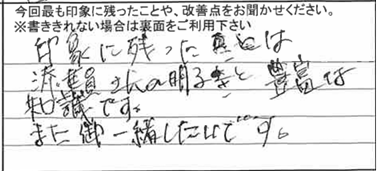 今回最も印象に残ったことや、改善点をお聞かせください。
※書ききれない場合は裏面をご利用下さい
印象に残った点は
添乗員さんの明るさと豊富な
知識です。
また御一緒したいです。